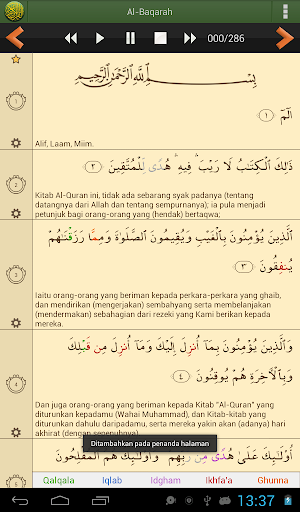 Al-Baqarah
000/286
بِسْمِ اللَّهِ الرَّحْمَٰنِ الرَّحِيمِ
الٓمٓ ١
Alif, Laam, Miim.
ذَٰلِكَ الْكِتَابُ لَا رَيْبَ ۛ فِيهِ ۛ هُدًى لِّلْمُتَّقِينَ ٢
2
Kitab Al-Quran ini, tidak ada sebarang syak padanya (tentang
datangnya dari Allah dan tentang sempurnanya); ia pula menjadi
petunjuk bagi orang-orang yang (hendak) bertaqwa;
الَّذِينَ يُؤْمِنُونَ بِالْغَيْبِ وَيُقِيمُونَ الصَّلَوٰةَ وَمِمَّا رَزَقْنَٰهُمْ
3
يُنفِقُونَ ٣
Iaitu orang-orang yang beriman kepada perkara-perkara yang ghaib,
dan mendirikan (mengerjakan) sembahyang serta membelanjakan
(mendermakan) sebahagian dari rezeki yang Kami berikan kepada
mereka.
وَالَّذِينَ يُؤْمِنُونَ بِمَآ أُنزِلَ إِلَيْكَ وَمَآ أُنزِلَ مِن قَبْلِكَ
4
وَبِالْآخِرَةِ هُمْ يُوقِنُونَ ٤
Dan juga orang-orang yang beriman kepada Kitab "Al-Quran" yang
diturunkan kepadamu (Wahai Muhammad), dan Kitab-kitab yang
diturunkan dahulu daripadamu, serta mereka yakin akan (adanya) hari
akhirat (dengan sepenuhnya).
Ditambahkan pada penanda halaman
أُولَٰٓئِكَ عَلَىٰ هُدًى مِّن رَّبِّهِمْ ۖ وَأُولَٰٓئِكَ هُمُ الْمُفْلِحُونَ
Qalqala Iqlab Idgham Ikhfa'a Ghunna
13:37